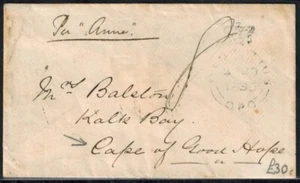 Per "Anne"
Mrs Balston
Kalk Bay.
Cape of Good Hope
G.P.O.
£30